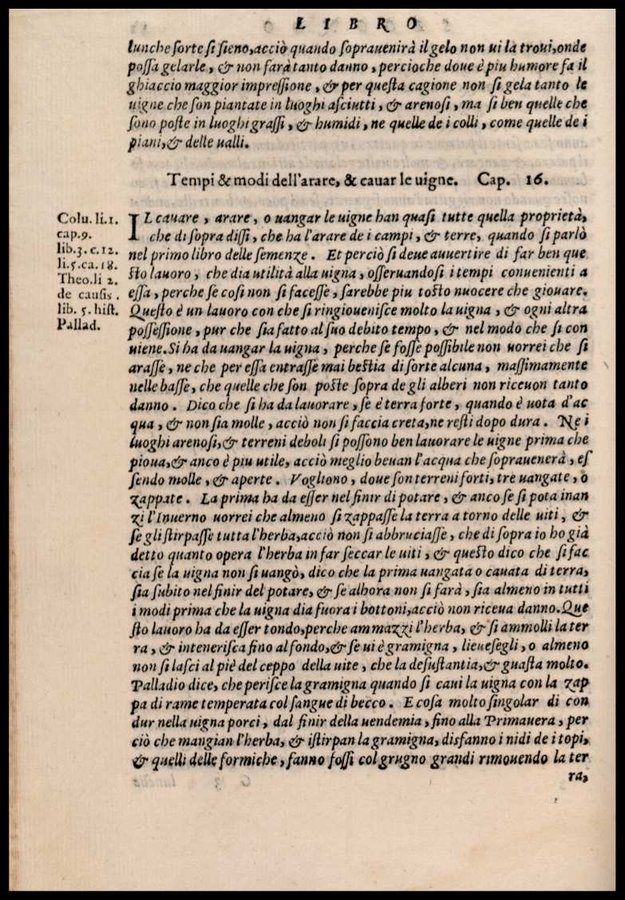 LIBRO
lunche sorte si sieno, acciò quando soprauenirà il gelo non ui la troui, onde
possa gelarle, & non farà tanto danno, percioche doue è piu humore fa il
ghiaccio maggior impressione, & per questa cagione non si gela tanto le
uigne che son piantate in luoghi asciutti, & arenosi, ma si ben quelle che
sono poste in luoghi grassi, & humidi, ne quelle de i colli, come quelle de i
piani, & delle ualli.
Tempi & modi dell'arare, & cauar le uigne. Cap. 16.
Colu. li.1.
cap.9.
lib.3.c.12.
li.5.ca.18.
Theo.li 2.
de causis.
lib. 5. hist.
Pallad.
IL cauare, arare, o uangar le uigne han quasi tutte quella proprietà,
che di sopra dissi, che ha l'arare de i campi, & terre, quando si parlò
nel primo libro delle semenze. Et perciò si deue auuertire di far ben que
sto lauoro, che dia utilità alla uigna, osseruandosi i tempi conuenienti a
essa, perche se cosi non si facesse, sarebbe piu tosto nuocere che giouare.
Questo è un lauoro con che si ringiouenisce molto la uigna, & ogni altra
possessione, pur che sia fatto al suo debito tempo, & nel modo che si con
uiene. Si ha da uangar la uigna, perche se fosse possibile non uorrei che si
arasse, ne che per essa entrasse mai bestia di sorte alcuna, massimamente
nelle basse, che quelle che son poste sopra de gli alberi non riceuon tanto
danno. Dico che si ha da lauorare, se è terra forte, quando è uota d'ac
qua, & non sia molle, acciò non si faccia creta, ne resti dopo dura. Ne i
luoghi arenosi, & terreni deboli si possono ben lauorare le uigne prima che
pioua, & anco è piu utile, acciò meglio beuan l'acqua che soprauenerà, es
sendo molle, & aperte. Vogliono, doue son terreni forti, tre uangate, o
zappate. La prima ha da esser nel finir di potare, & anco se si pota inan
zi l'Inuerno uorrei che almeno si zappasse la terra a torno delle uiti, &
se gli stirpasse tutta l'herba, acciò non si abbruciasse, che di sopra io ho già
detto quanto opera l'herba in far seccar le uiti, & questo dico che si fac
cia se la uigna non si uangò, dico che la prima uangata o cauata di terra,
sia subito nel finir del potare, & se alhora non si farà, sia almeno in tutti
i modi prima che la uigna dia fuora i bottoni, acciò non riceua danno. Que
sto lauoro ha da esser tondo, perche ammazzi l'herba, & si ammolli la ter
ra, & intenerisca fino al fondo, & se ui è gramigna, lieuesegli, o almeno
non si lasci al piè del ceppo della uite, che la desustantia, & guasta molto.
Palladio dice, che perisce la gramigna quando si caui la uigna con la zap
pa di rame temperata col sangue di becco. E cosa molto singolar di con
dur nella uigna porci, dal finir della uendemia, fino alla Primauera, per
ciò che mangian l'herba, & istirpan la gramigna, disfanno i nidi de i topi,
& quelli delle formiche, fanno fossi col grugno grandi rimouendo la ter
ra,